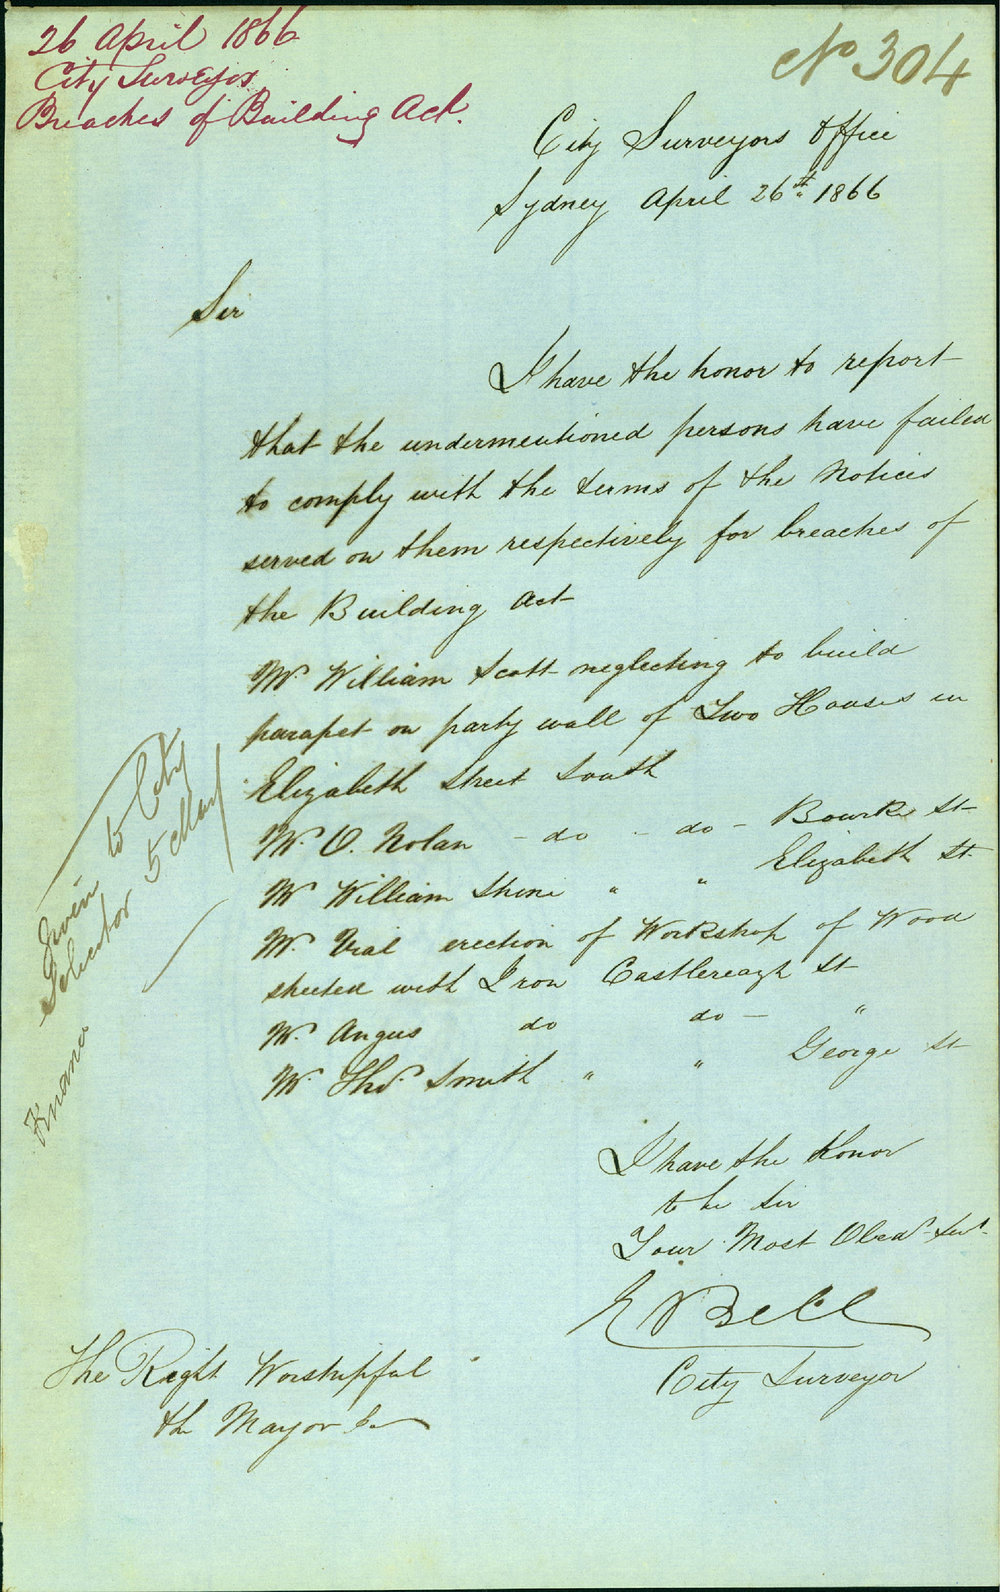 26 April 1866
City Surveyor
Breaches of Building Act.
No 304
City Surveyors Office
Sydney April 26th 1866
Sir
I have the honor to report
that the undermentioned persons have failed
to comply with the terms of the Notices
served on them respectively for breaches of
the Building Act
Mr. William Scott neglecting to build
parapet on party wall of Two Houses in
Elizabeth Street South
Mr. O. Nolan - do - do - Bourke St
Mr William Shine " " Elizabeth St.
Mr. Vial erection of Workshop of Wood
sheeted with Iron Castlereagh St
Mr. Angus do do - "
Mr. Thos. Smith " " George St
Given to City
Solicitor 5 May
I have the Honor
to be Sir
Your Most Obed Sert.
E Bell
City Surveyor
The Right Worshipful
the Mayor &c